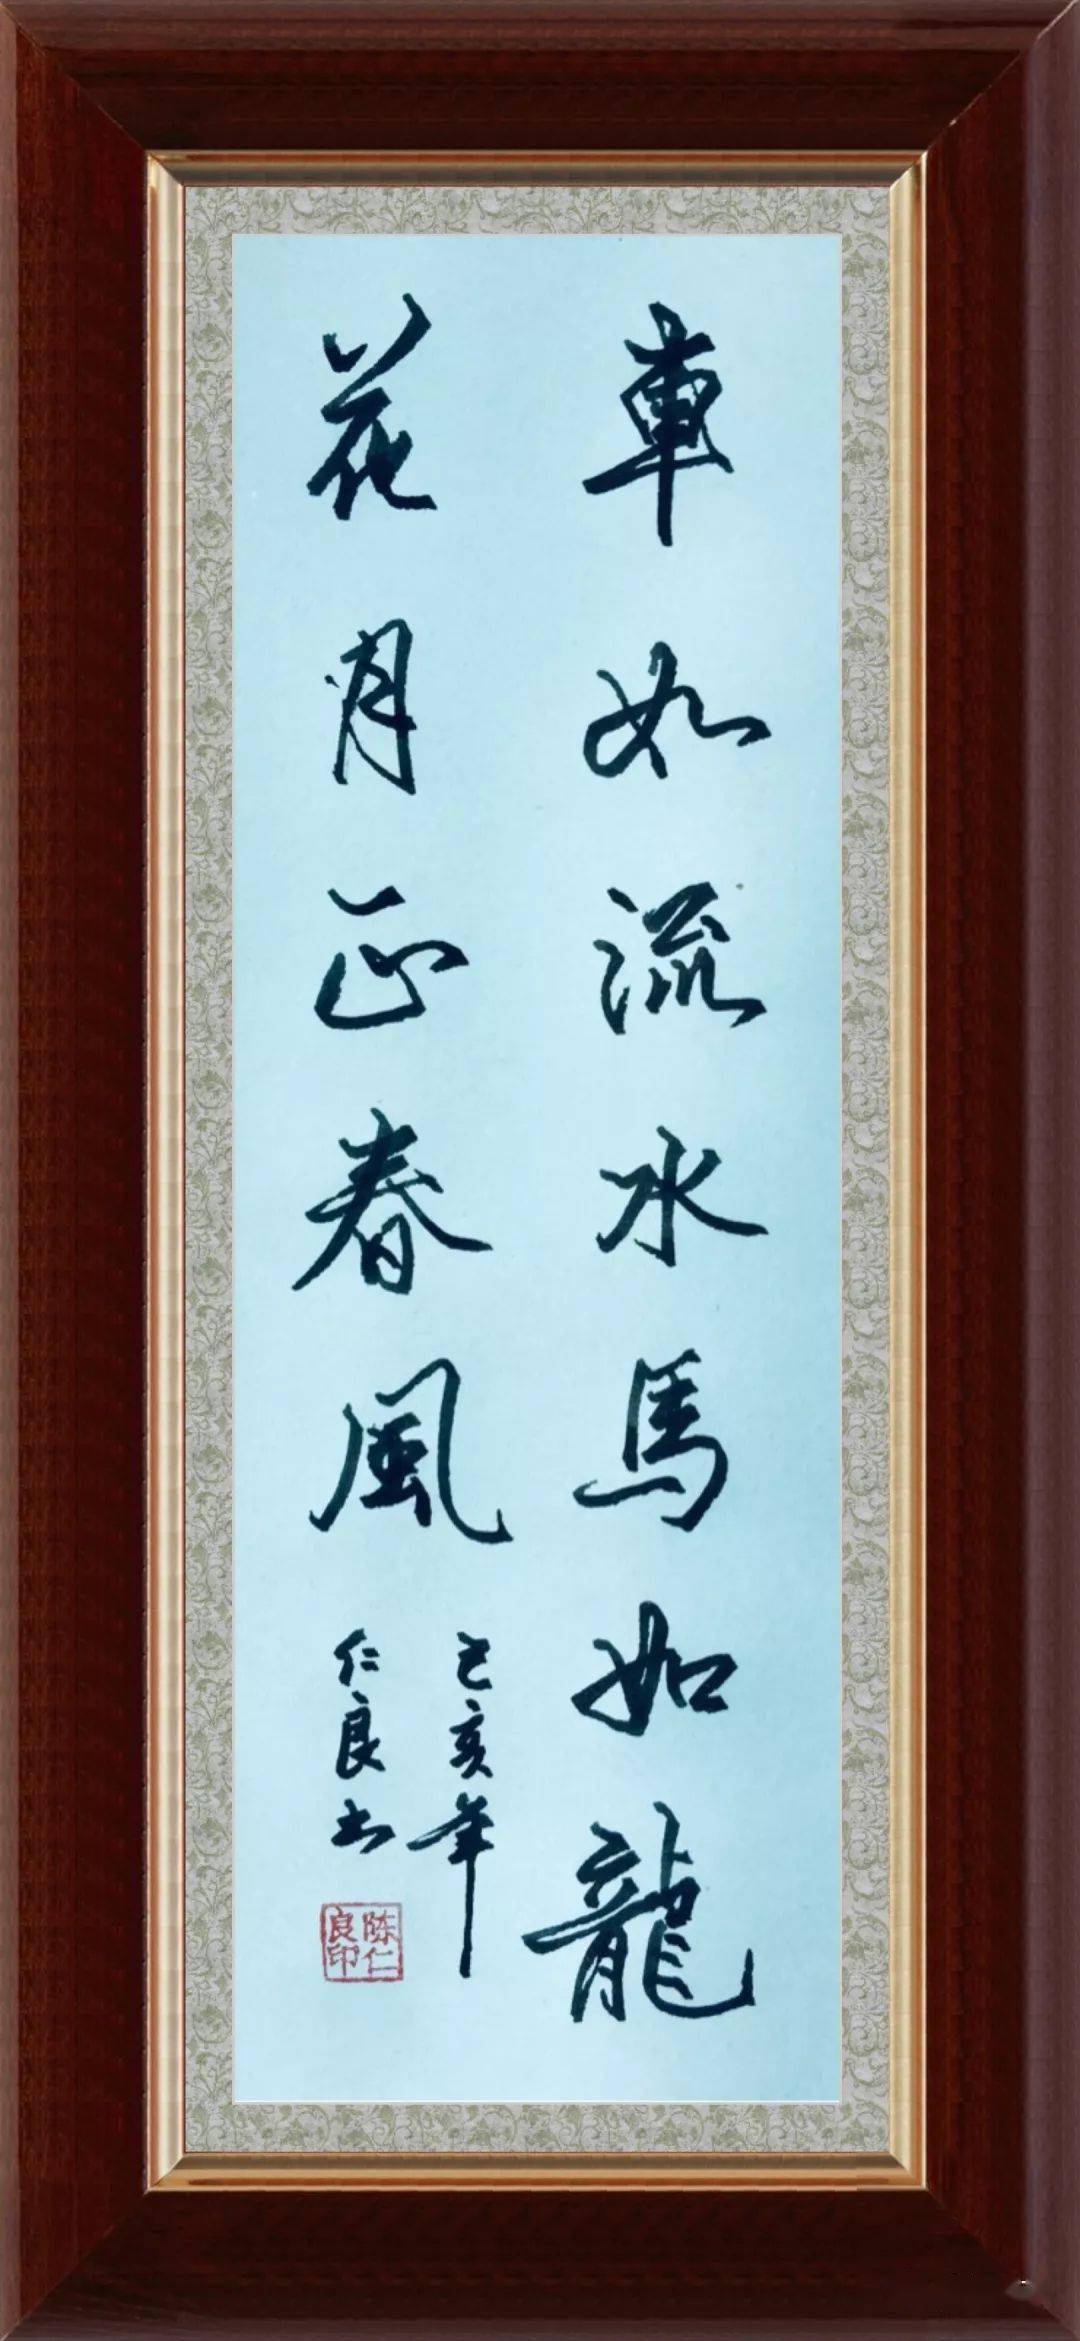 車如流水馬如龍
花月正春風
己亥年
仁良书
陈仁良印